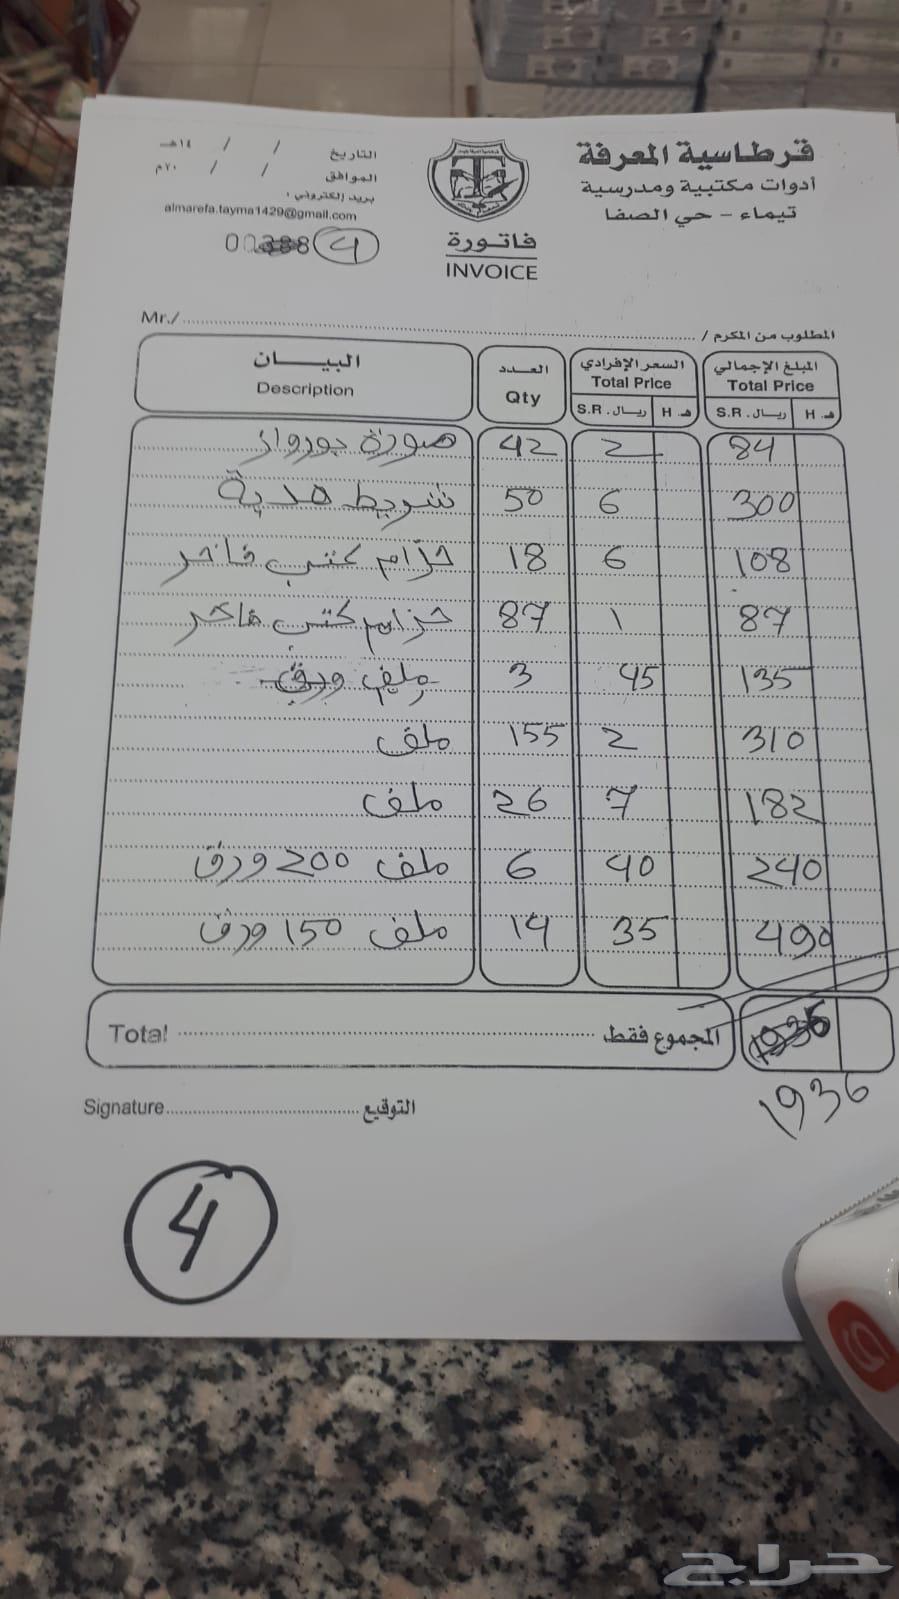 قرطاسية المعرفة
أدوات مكتبية ومدرسية
تيماء - حي الصفا
فاتورة
INVOICE
التاريخ / / ١٤هـ
الموافق / / ٢٠م
بريد إلكتروني :
almarefa.tayma1429@gmail.com
4
المطلوب من المكرم / Mr./
البيـــان العـدد السعر الإفرادي المبلغ الإجمالي
Description Qty Total Price Total Price
S.R. ريال H هـ S.R. ريال H هـ
صورة بورواز 42 2 84
شريط هدية 50 6 300
حزام كتب فاخر 18 6 108
حزام كتب فاخر 87 1 87
ملف ورق 3 45 135
ملف 155 2 310
ملف 26 7 182
ملف 200 ورق 6 40 240
ملف 150 ورق 14 35 490
Total المجموع فقط 1936
1936
Signature التوقيع
4
حراج